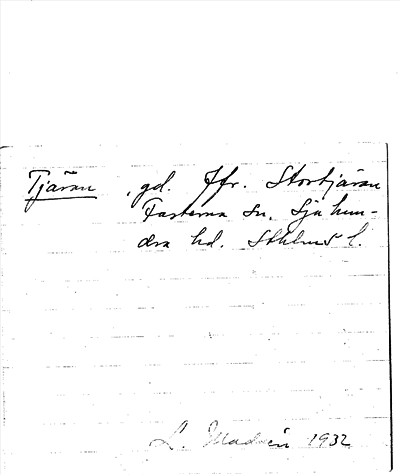 Tjäran, gd. Jfr. Stortjäran
Fasterna sn. Sjuhun-
dra hd. Sthlms l.
L. 1932